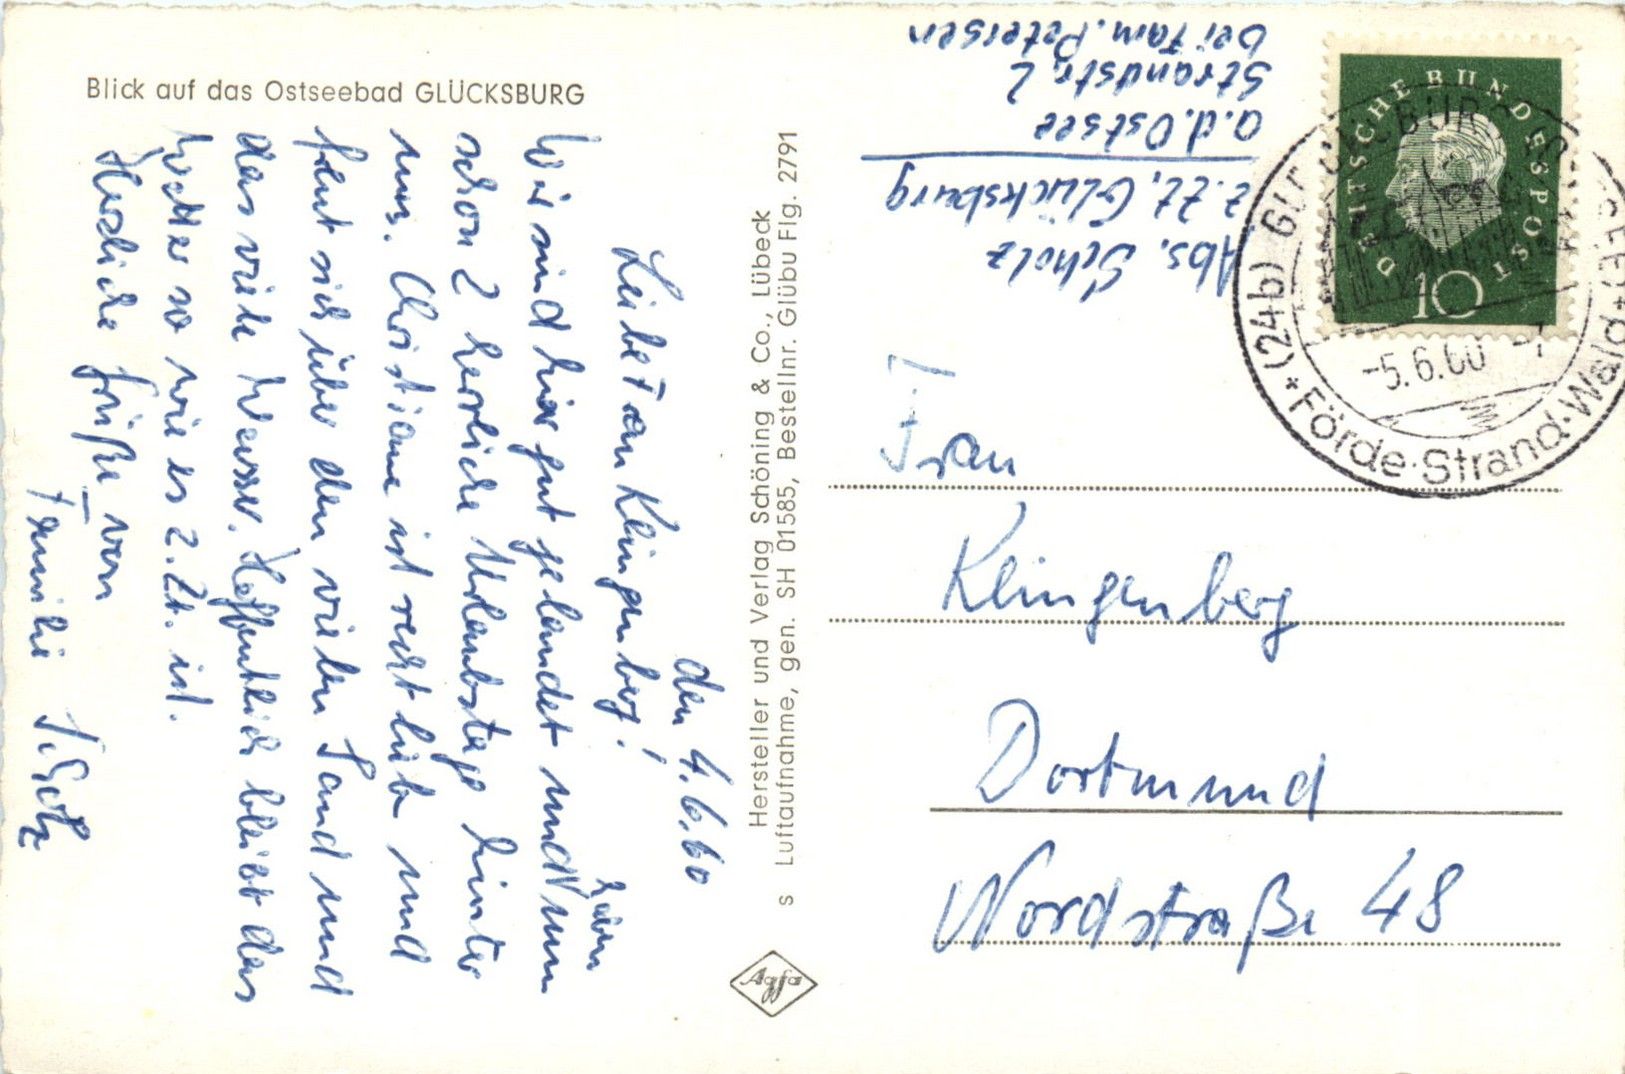 Blick auf das Ostseebad GLÜCKSBURG
den 4.6.60
Liebe Frau Klingenberg!
Wir sind hier gut gelandet und haben nun
schon 2 herrliche Urlaubstage hinter
uns. Christiane ist recht lieb und
freut sich über den vielen Sand und
das viele Wasser. Hoffentlich bleibt das
Wetter so wie es z. Zt. ist.
Herzliche Grüße von
Familie Scholz
Hersteller und Verlag Schöning & Co., Lübeck
s Luftaufnahme, gen. SH 01585, Bestellnr. Glübu Flg. 2791
Agfa
Abs. Scholz
z. Zt. Glücksburg
a. d. Ostsee
Strandstr. 2
bei Fam. Petersen
DEUTSCHE BUNDESPOST
10
(24b) GLÜCKSBURG
-5.6.60
Förde·Strand·Wald
Frau
Klingenberg
Dortmund
Nordstraße 48